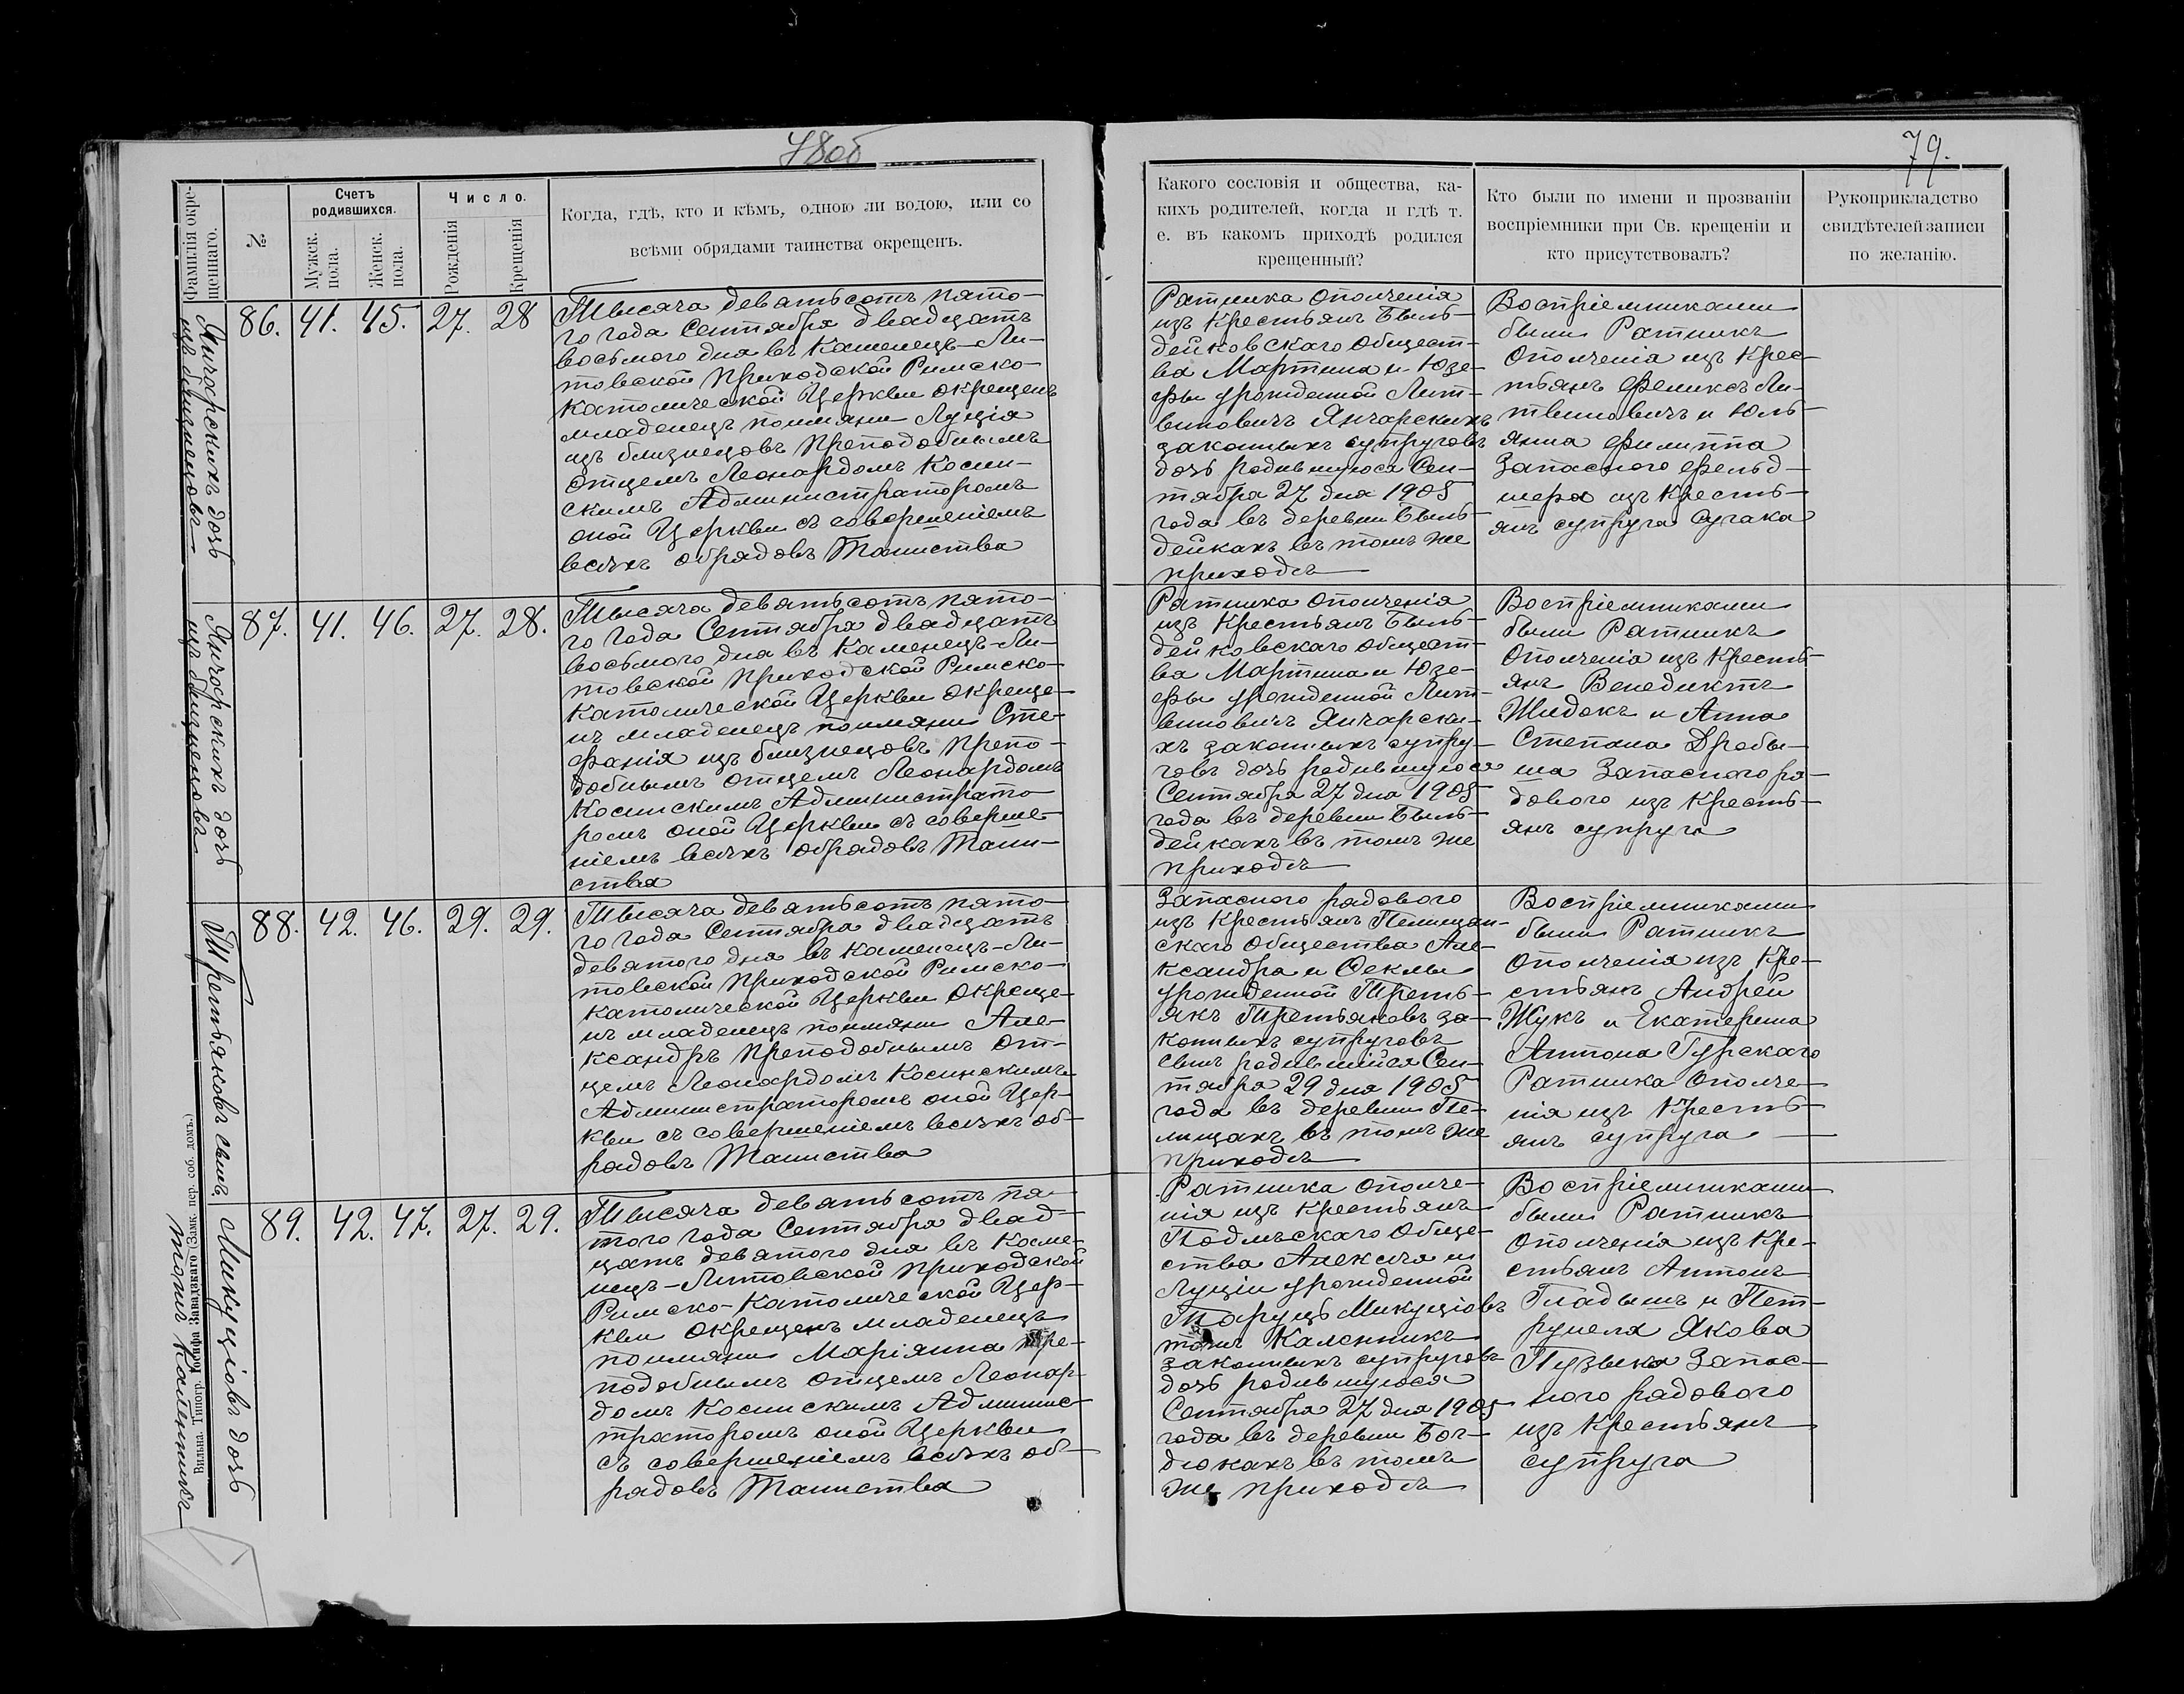 78об
79.
Фамилія окре-
щеннаго.
№
Счетъ
родившихся.
Мужск.
пола.
Женск.
пола.
Число.
Рожденія
Крещенія
Когда, гдѣ, кто и кѣмъ, одною ли водою, или со
всѣми обрядами таинства окрещенъ.
Какого сословія и общества, ка-
кихъ родителей, когда и гдѣ т.
е. въ какомъ приходѣ родился
крещенный?
Кто были по имени и прозваніи
воспріемники при Св. крещеніи и
кто присутствовалъ?
Рукоприкладство
свидѣтелей записи
по желанію.
Янчарскихъ дочь
изъ близнецовъ
86. 41. 45. 27. 28
Тысяча девятьсотъ пято-
го года Сентября двадцать
восьмого дня въ Каменецъ-Ли-
товской Приходской Римско-
Католической Церкви окрещенъ
младенецъ поимяни Луція
изъ близнецовъ Преподобнымъ
Отцемъ Леонардомъ Косин-
скимъ Администраторомъ
оной Церкви съ совершеніемъ
всѣхъ обрядовъ Таинства
Ратника ополченія
изъ Крестьянъ Быль-
дейковскаго Общест-
ва Мартина и Юзе-
фы урожденной Лит-
виновичъ Янчарскихъ
законныхъ супруговъ
дочь родившуюся Сен-
тября 27 дня 1905
года въ деревни Быль-
дейкахъ въ томъ же
приходѣ
Воспріемниками
были Ратникъ
Ополченія изъ Крес-
тьянъ Феликсъ Ли-
твиновичъ и Юль-
янна Филиппа
Запасного фельд-
шера изъ Кресть-
янъ супруга Сугака
Янчарскихъ дочь
изъ близнецовъ
87. 41. 46. 27. 28.
Тысяча девятьсотъ пято-
го года Сентября двадцать
восьмого дня въ Каменецъ-Ли-
товской Приходской Римско-
Католической Церкви окреще-
нъ младенецъ поимяни Сте-
фанія изъ близнецовъ Препо-
добнымъ Отцемъ Леонардомъ
Косинскимъ Администрато-
ромъ оной Церкви съ соверше-
ніемъ всѣхъ обрядовъ Таин-
ства
Ратника ополченія
изъ Крестьянъ Быль-
дейковскаго Общест-
ва Мартина и Юзе-
фы урожденной Лит-
виновичъ Янчарски-
хъ законныхъ супру-
говъ дочь родившуюся
Сентября 27 дня 1905
года въ деревни Быль-
дейкахъ въ томъ же
приходѣ
Воспріемниками
были Ратникъ
Ополченія изъ Кресть-
янъ Венедиктъ
Жидокъ и Анна
Степана Дробы-
ша Запасного ря-
дового изъ Кресть-
янъ супруга
Третьяковъ сынъ
88. 42. 46. 29. 29.
Тысяча девятьсотъ пято-
го года Сентября двадцать
девятого дня въ Каменецъ-Ли-
товской Приходской Римско-
Католической Церкви окреще-
нъ младенецъ поимяни Але-
ксандръ Преподобнымъ От-
цемъ Леонардомъ Косинскимъ
Администраторомъ оной Цер-
кви съ совершеніемъ всѣхъ об-
рядовъ Таинства
Запасного рядового
изъ Крестьянъ Пелищан-
скаго Общества Але-
ксандра и Феклы
урожденной Треть-
якъ Третьяковъ за-
конныхъ супруговъ
сынъ родившійся Сен-
тября 29 дня 1905
года въ деревни Пе-
лищахъ въ томъ же
приходѣ
Воспріемниками
были Ратникъ
Ополченія изъ Кре-
стьянъ Андрей
Жукъ и Екатерина
Антона Гурскаго
Ратника Ополче-
нія изъ Кресть-
янъ супруга
Микуціовъ дочь
тожъ Каленникъ
89. 42. 47. 27. 29.
Тысяча девятьсотъ пя-
того года Сентября двад-
цать девятого дня въ Каме-
нецъ-Литовской Приходской
Римско-Католической Цер-
кви окрещенъ младенецъ
поимяни Маріянна Пре-
подобнымъ Отцемъ Леонар-
домъ Косинскимъ Админис-
траторомъ оной Церкви
съ совершеніемъ всѣхъ об-
рядовъ Таинства
Ратника ополче-
нія изъ Крестьянъ
Подлѣскаго Обще-
ства Алексѣя и
Луціи урожденной
Таруць Микуціовъ
тожъ Каленникъ
законныхъ супруговъ
дочь родившуюся
Сентября 27 дня 1905
года въ деревни Бог-
дюкахъ въ томъ
же приходѣ
Воспріемниками
были Ратникъ
Ополченія изъ Кре-
стьянъ Антонъ
Гладышъ и Пет-
рунеля Якова
Пузыка Запас-
ного рядового
изъ Крестьянъ
супруга
Вильна. Типогр. Іосифа Завадзкаго (Замк. пер. соб. домъ.)